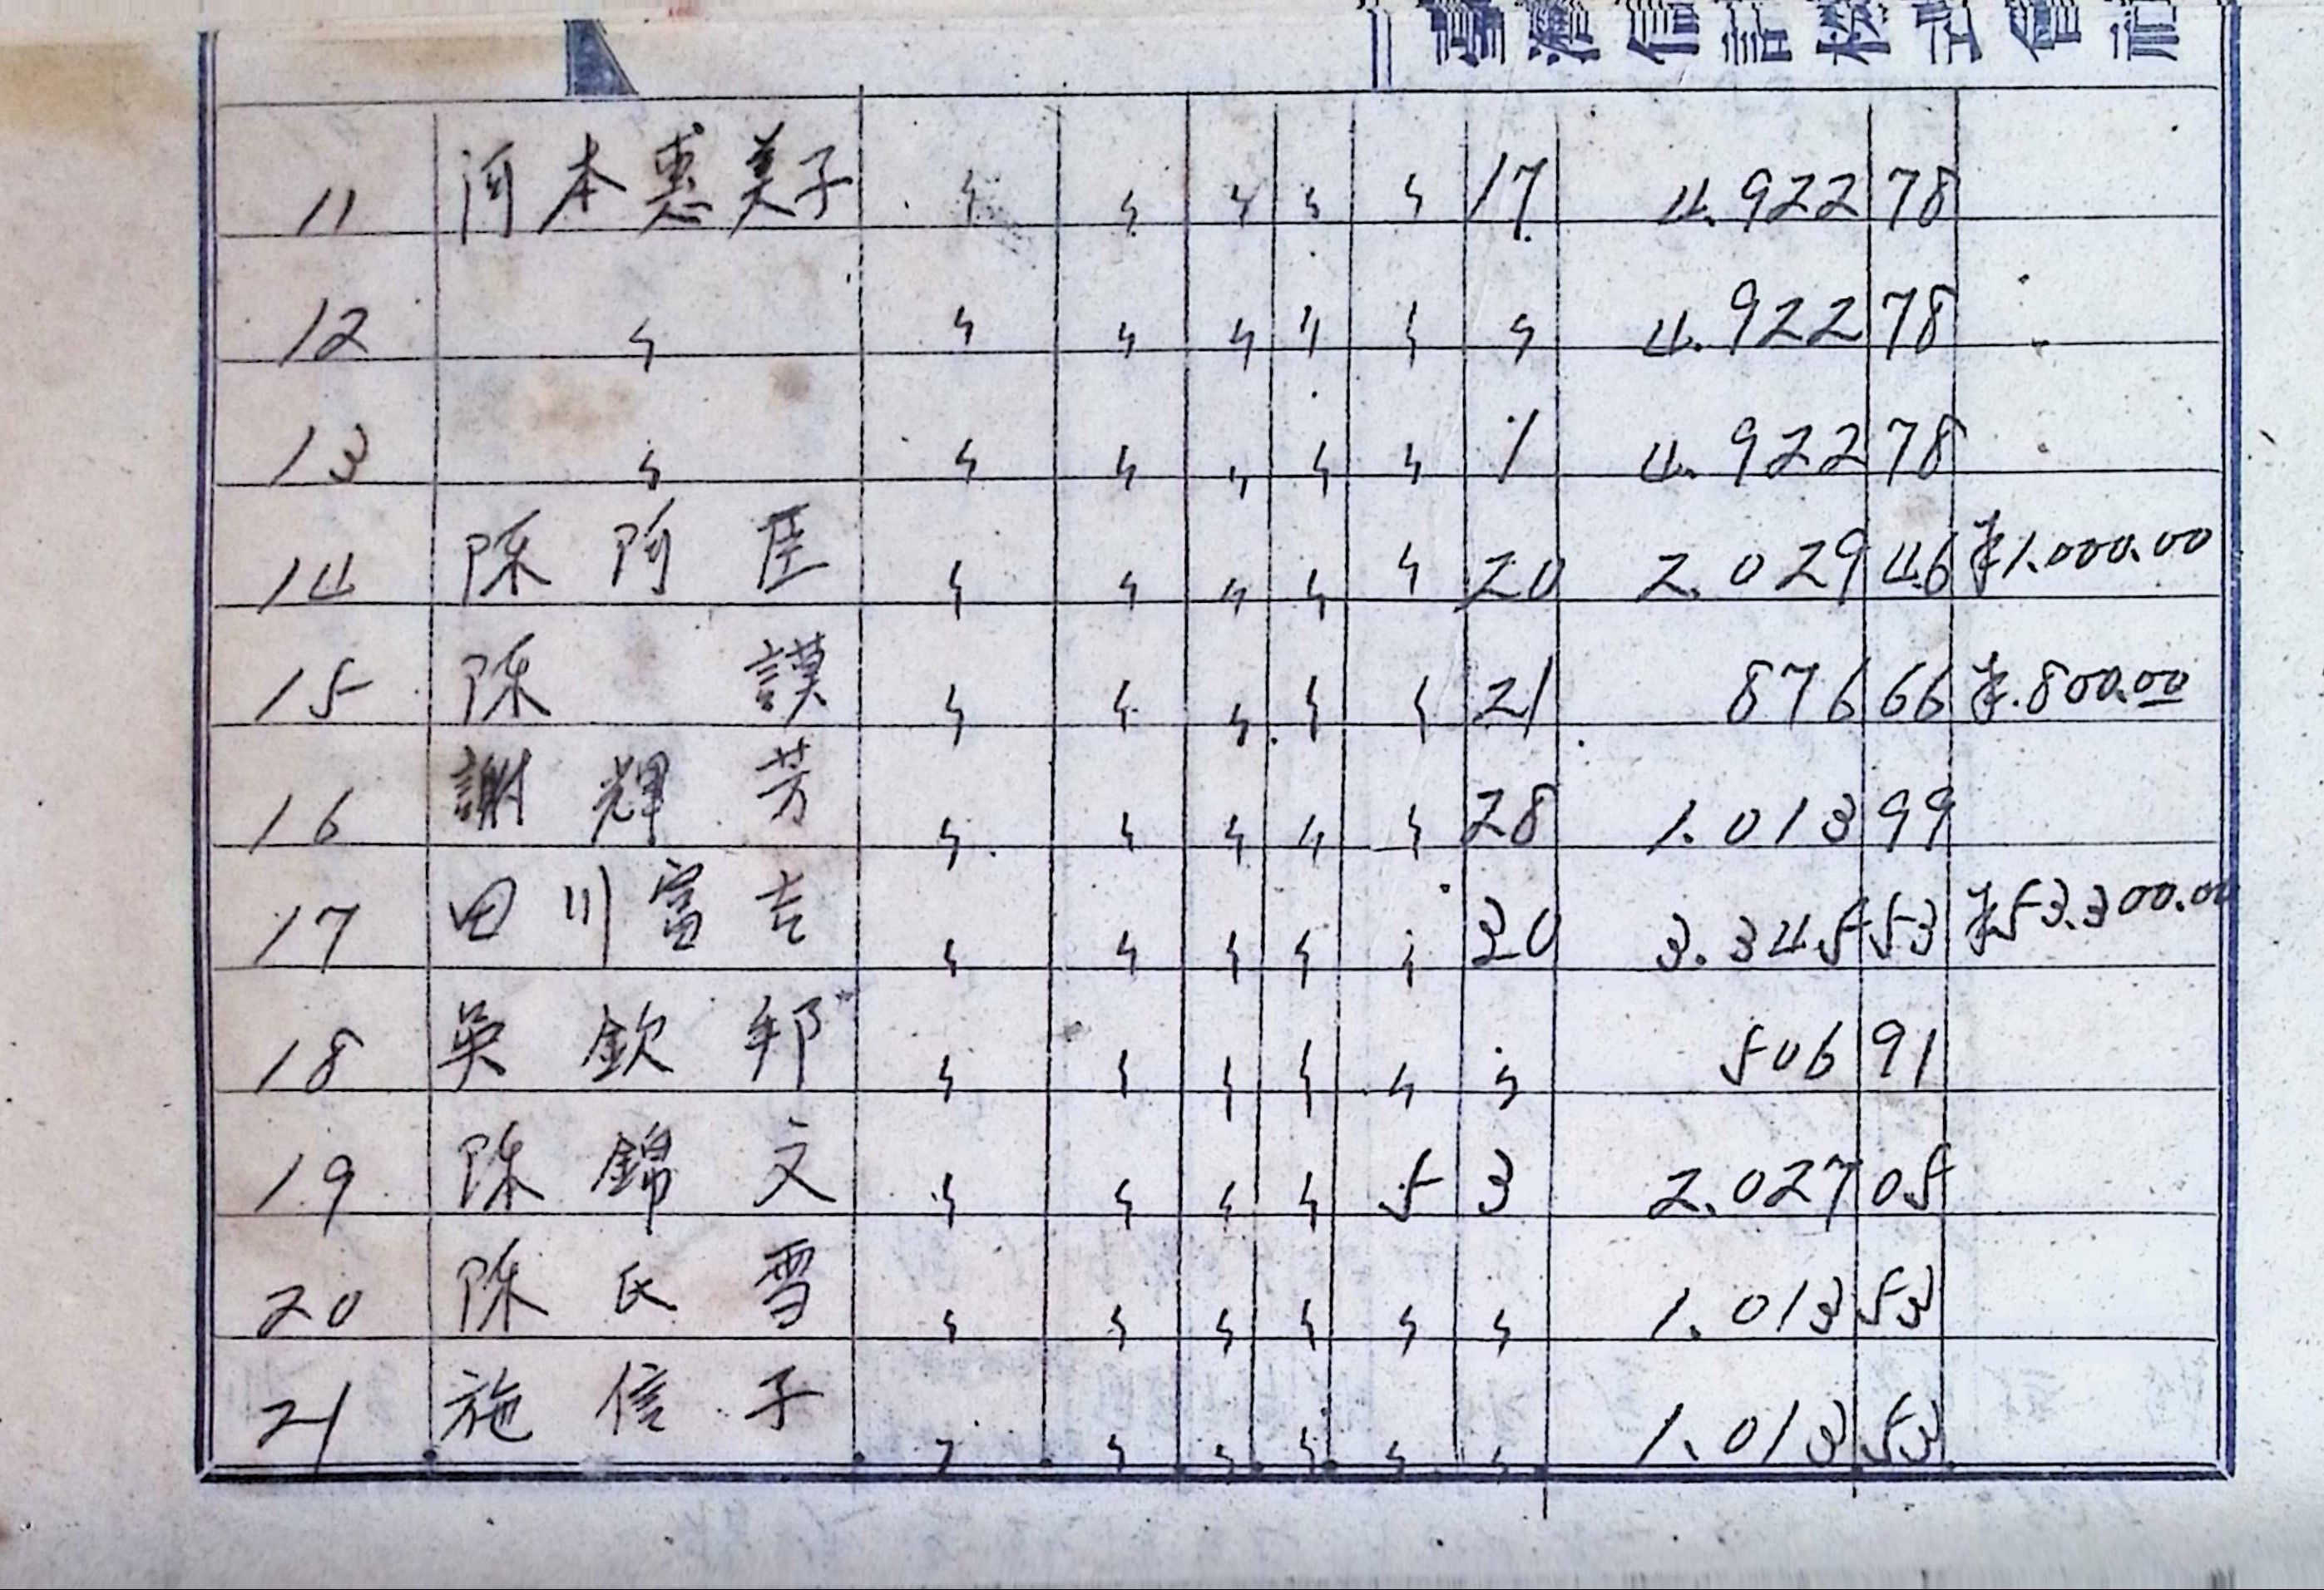 臺灣信託株式會社
11 河本惠美子 〃 〃 〃 〃 〃 17 4.922 78
12 〃 〃 〃 〃 〃 〃 〃 4.922 78
13 〃 〃 〃 〃 〃 〃 〃 4.922 78
14 陳阿臣 〃 〃 〃 〃 〃 20 2.029 46 ¥1.000.00
15 陳謨 〃 〃 〃 〃 〃 21 876 66 ¥.800.00
16 謝輝芳 〃 〃 〃 〃 〃 28 1.013 99
17 田川富吉 〃 〃 〃 〃 〃 30 3.345 53 ¥53.300.00
18 吳欽邦 〃 〃 〃 〃 〃 〃 506 91
19 陳錦文 〃 〃 〃 〃 5 3 2.027 05
20 陳氏雪 〃 〃 〃 〃 〃 〃 1.013 53
21 施信子 〃 〃 〃 〃 〃 〃 1.013 53